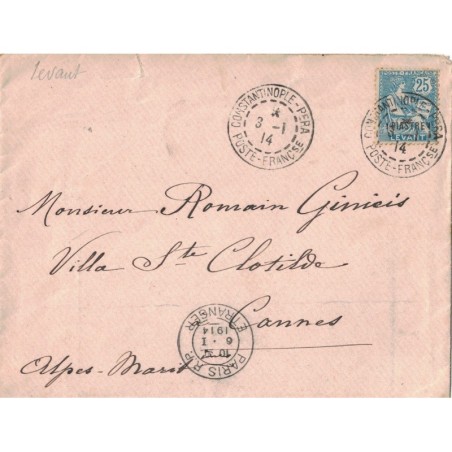 Levant
CONSTANTINOPLE-PERA
*
3 -1
14
POSTE-FRANCSE
25
1 PIASTRE 1
LEVANT
CONSTANTINOPLE-PERA
14
POSTE-FRANCSE
Monsieur Romain Ginieis
Villa Ste Clotilde
Cannes
Alpes-Marit
PARIS R.P.
10
6 - 1
1914
ETRANGER